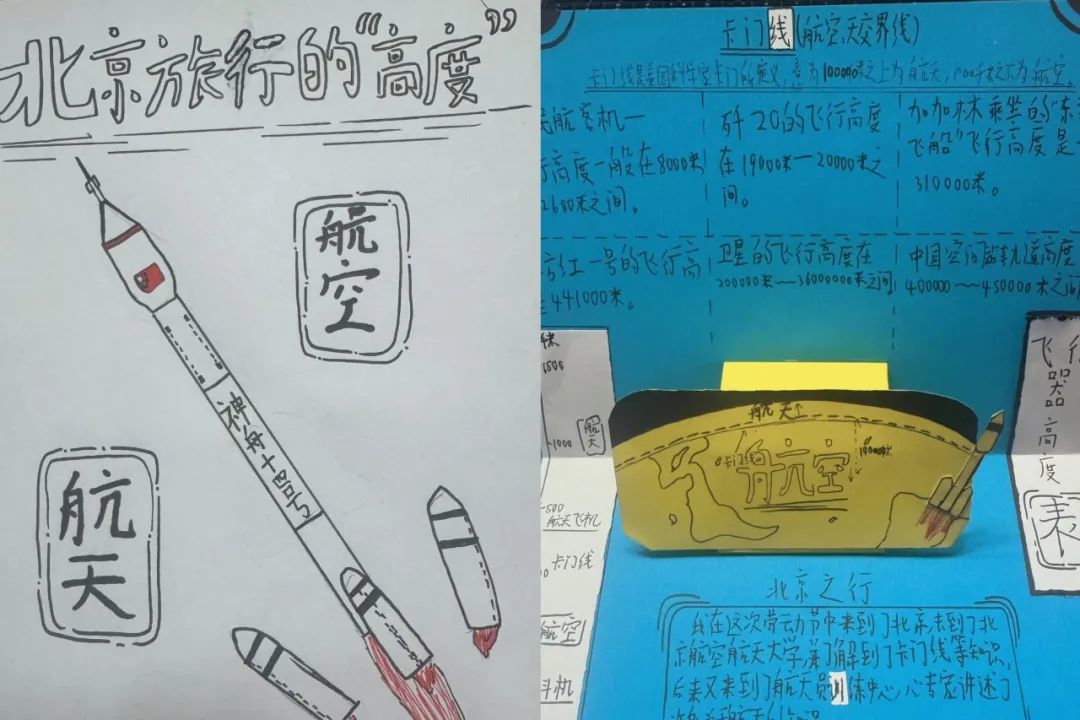 北京旅行的“高度”
航空
神舟十四号
航天
卡门线(航空天交界线)
卡门线是美国科学家卡门所定义,意为100000米之上为航天,100千米之下为航空。
民航客机一
行高度一般在8000米
12600米之间。
歼20的飞行高度
在19000米—20000米之
间。
加加林乘坐的“东
飞船”飞行高度是
310000米。
方红一号的飞行高
441000米。
卫星的飞行高度在
200000米~36000000米之间
中国空间站轨道高度
400000~450000米之间
1000
航天
500
航天飞机
卡门线
航空
斗机
飞行
器
高
度
表
航天↑
卡门线
100000米
航空
北京之行
我在这次劳动节中来到了北京,来到了北
京航空航天大学,了解到了卡门线等知识,
后来又来到了航天员训练中心,心专家讲述了